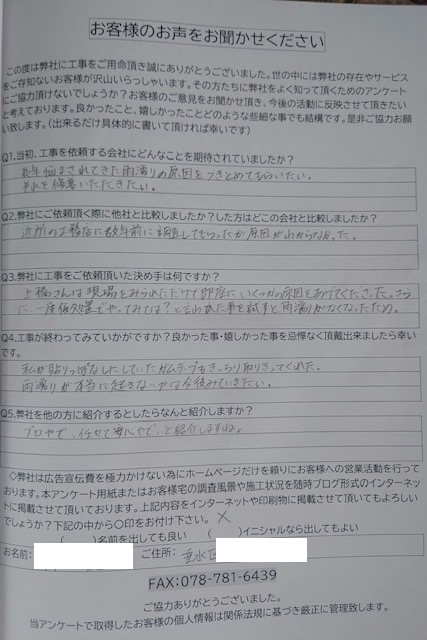 お客様のお声をお聞かせください
この度は弊社に工事をご用命頂き誠にありがとうございました。世の中には弊社の存在やサービス
をご存知ないお客様が沢山いらっしゃいます。その方たちに弊社をよく知って頂くためのアンケート
にご協力頂けないでしょうか？お客様のご意見をお聞かせ頂き、今後の活動に反映させて頂きたい
と考えております。良かったこと、嬉しかったことどのような些細な事でも結構です。是非ご協力お願
い致します。（出来るだけ具体的に書いて頂ければ幸いです）
Q1.当初、工事を依頼する会社にどんなことを期待されていましたか？
長年悩まされてきた雨漏りの原因をつきとめてもらいたい。
それを修意いただきたい。
Q2.弊社にご依頼頂く際に他社と比較しましたか？した方はどこの会社と比較しましたか？
近所の工務店に数年前に調査してもらったが原因がわからなかった。
Q3.弊社に工事をご依頼頂いた決め手は何ですか？
上橋さんは現場をみられただけで即座にいくつかの原因をあげてくださった。さら
に、一度仮処置でやってみては？と言われた事を試すと雨漏りがなくなったため。
Q4.工事が終わってみていかがですか？良かった事・嬉しかった事を忌憚なく頂戴出来ましたら幸い
です。
私が貼りっぱなしにしていたガムテープもきっちり取りさってくれた。
雨漏りが本当に起きないかは今後みていきたい。
Q5.弊社を他の方に紹介するとしたらなんと紹介しますか？
プロやで、任せて安心やで、と紹介しますね。
◇弊社は広告宣伝費を極力かけない為にホームページだけを頼りにお客様への営業活動を行って
おります。本アンケート用紙またはお客様宅の調査風景や施工状況を随時ブログ形式のインターネッ
トに掲載させて頂いております。上記内容をインターネットや印刷物に掲載させて頂いてもよろしい
でしょうか？下記の中から〇印をお付け下さい。 ×
（ ）名前を出しても良い （ ）イニシャルなら出してもよい
お名前： ご住所： 垂水区
FAX:078-781-6439
ご協力ありがとうございました。
当アンケートで取得したお客様の個人情報は関係法規に基づき厳正に管理致します。